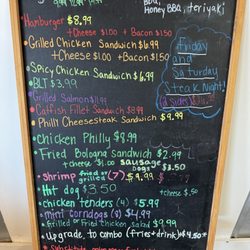 BBQ,
Honey BBQ, teriyaki
Hamburger $8.99
+Cheese $1.00 + Bacon $1.50
Grilled Chicken Sandwich $6.99
+Cheese $1.00 + Bacon $1.50
Spicy Chicken Sandwich $6.99
BLT $3.99
Grilled Salmon
Catfish Fillet Sandwich $8.99
Philly Cheesesteak Sandwich $9.99
Friday
and
Saturday
Steak Night
(2 sides)
Chicken Philly $8.99
Fried Bologna Sandwich $2.99
+cheese $1.00 sausage
Dogs
shrimp fried or grilled (7) $9.99
Hot dog $3.50 +cheese $.50
chicken tenders (4) $5.99
mini corndogs (8) $4.99
grilled or fried chicken salad $9.99
Upgrade to combo (fries+drink)